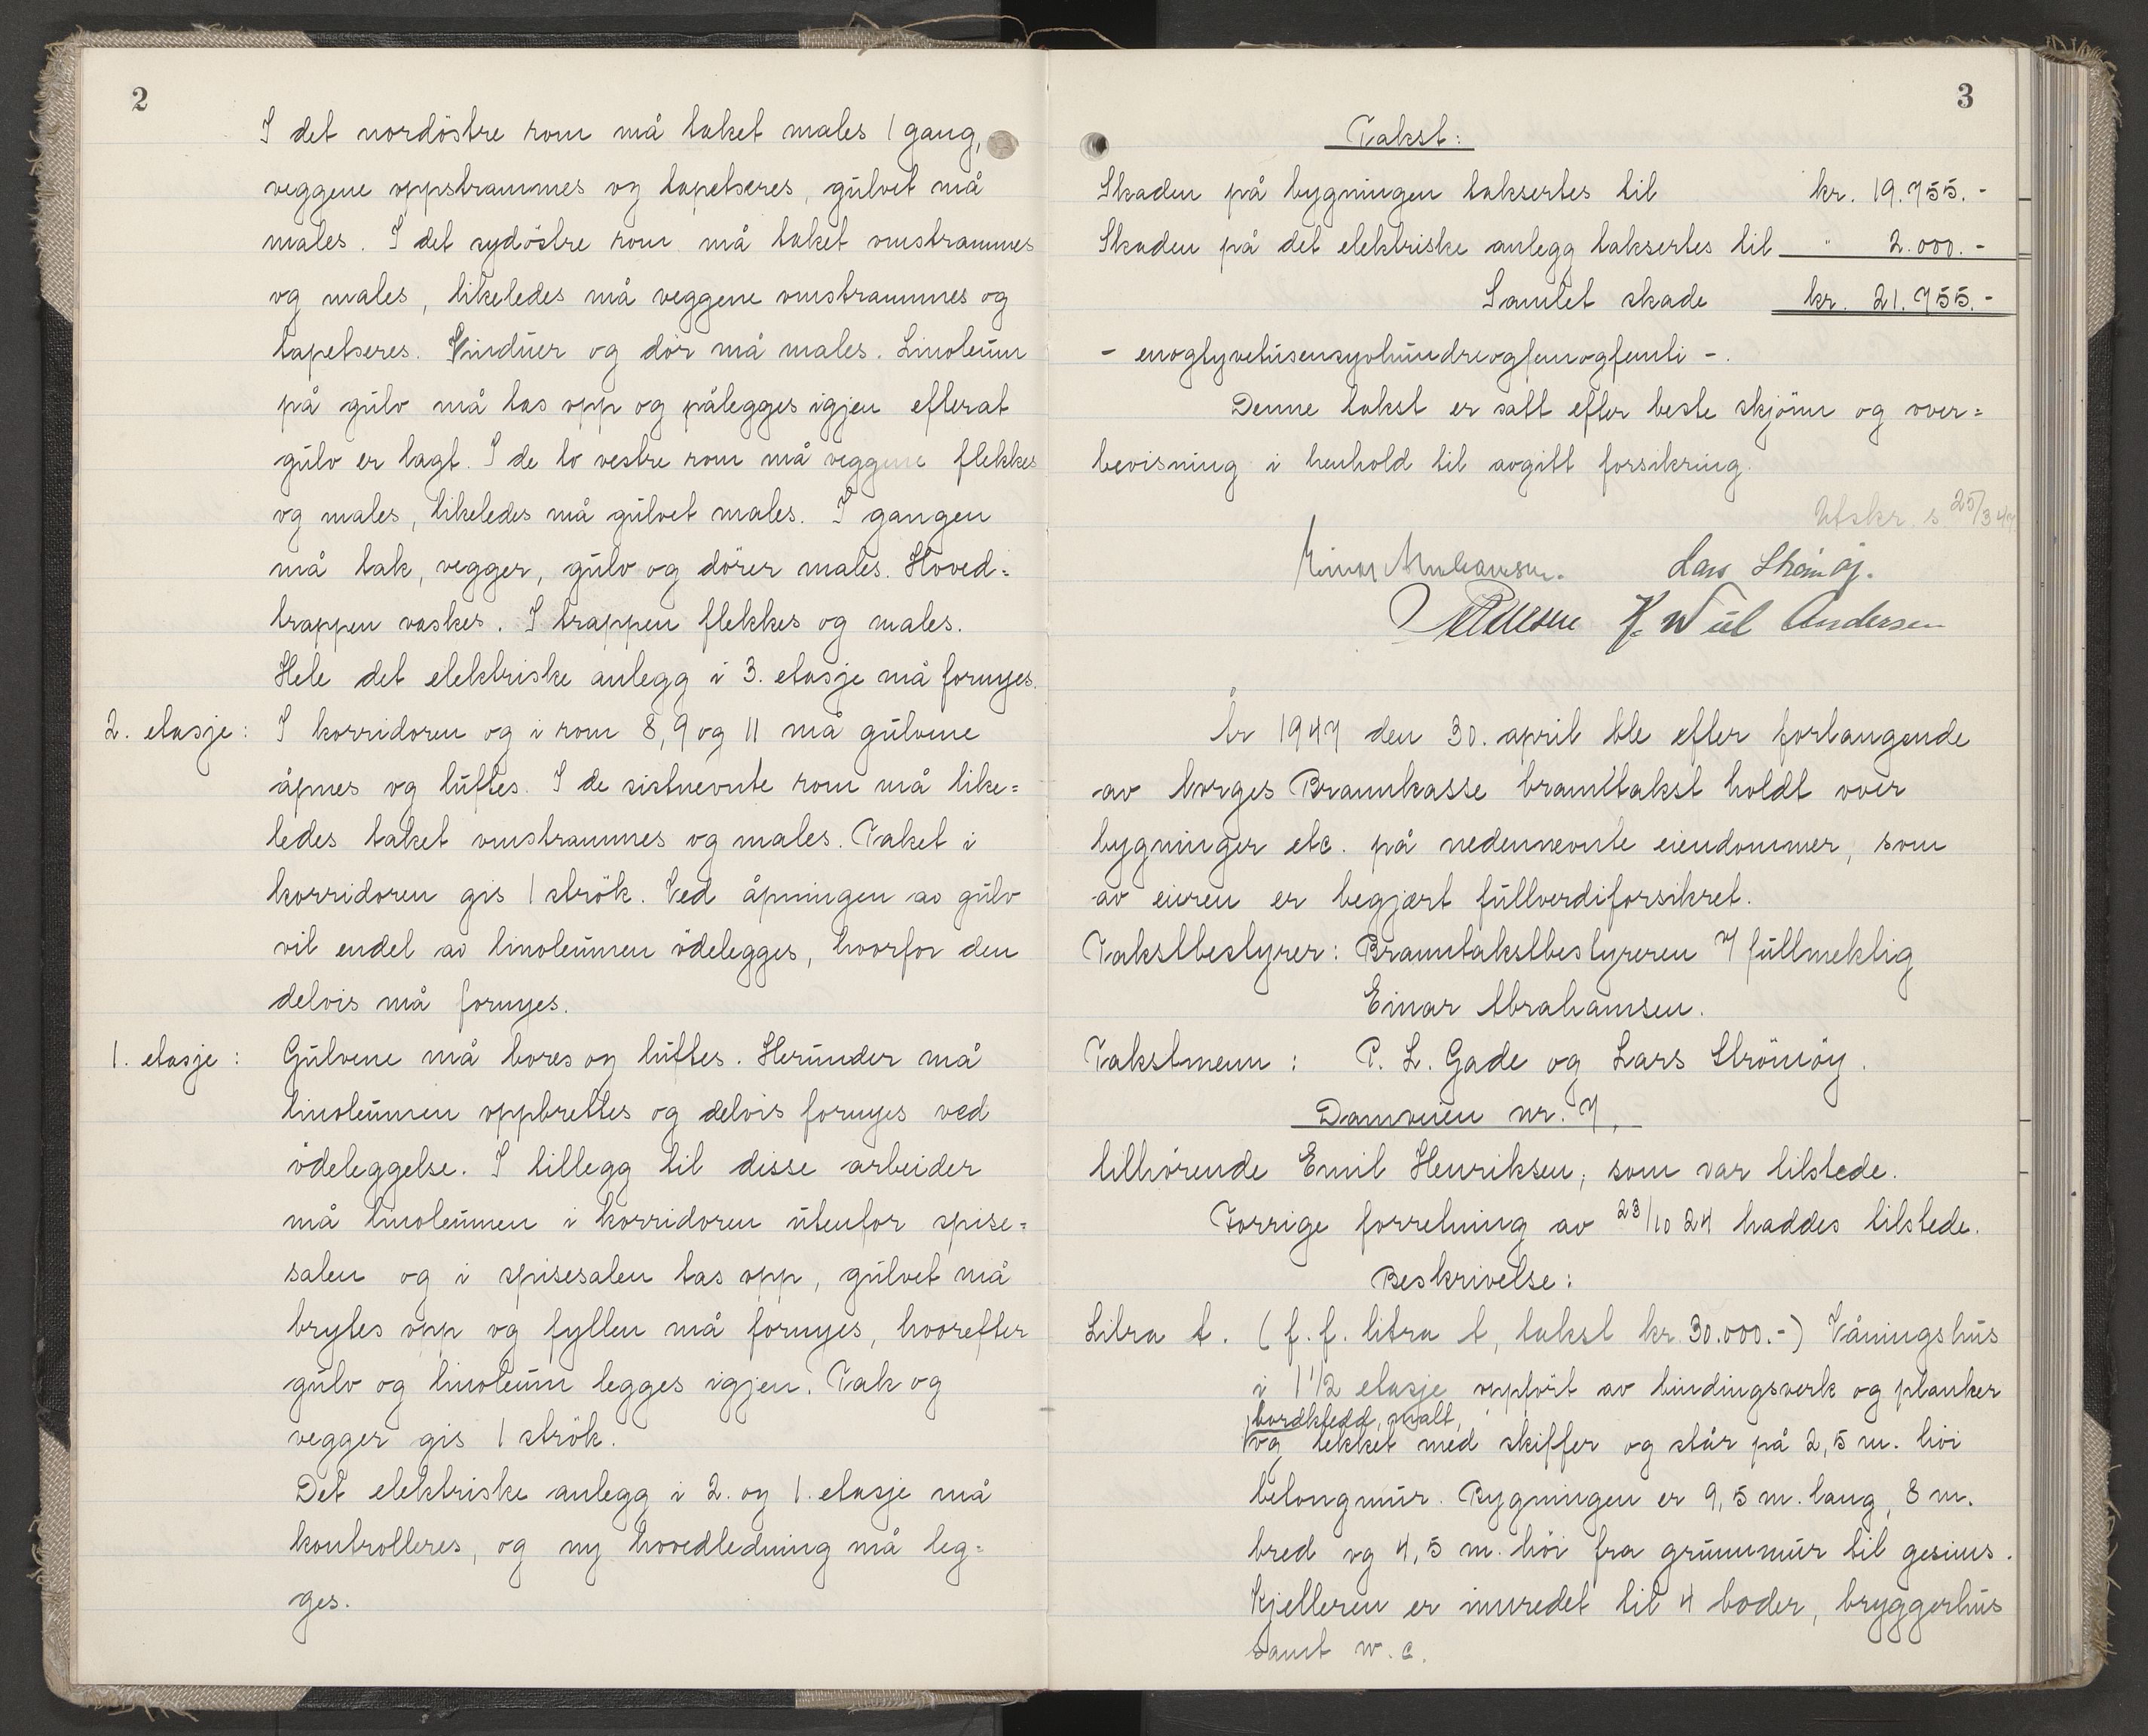 2
I det nordöstre rom må taket males 1 gang,
veggene oppstrammes og tapetseres, gulvet må
males. I det sydöstre rom må taket omstrammes
og males, likeledes må veggene omstrammes og
tapetseres. Vinduer og dör må males. Linoleum
på gulv må tas opp og pålegges igjen efterat
gulv er lagt. I de to vestre rom må veggene flekkes
og males, likeledes må gulvet males. I gangen
må tak, vegger, gulv og dörer males. Hoved=
trappen vaskes. I trappen flekkes og males.
Hele det elektriske anlegg i 3. etasje må fornyes.
2. etasje: I korridoren og i rom 8, 9 og 11 må gulvene
åpnes og luftes. I de sistnevnte rom må like=
ledes taket omstrammes og males. Taket i
korridoren gis 1 strök. Ved åpningen av gulv
vil endel av linoleumen ödelegges, hvorfor den
delvis må fornyes.
1. etasje: Gulvene må bores og luftes. Herunder må
linoleumen oppbrettes og delvis fornyes ved
ödeleggelse. I tillegg til disse arbeider
må linoleumen i korridoren utenfor spise=
salen og i spisesalen tas opp, gulvet må
brytes opp og fyllen må fornyes, hvorefter
gulv og linoleum legges igjen. Tak og
vegger gis 1 strök.
Det elektriske anlegg i 2. og 1. etasje må
kontrolleres, og ny hovedledning må leg=
ges.
3
Takst:
Skaden på bygningen taksertes til kr. 19.755.-
Skaden på det elektriske anlegg taksertes til " 2.000.-
Samlet skade kr. 21.755.-
- enogtyvetusensyvhundreogfemogfemti -.
Denne takst er satt efter beste skjönn og over=
bevisning i henhold til avgitt forsikring.
Utskr. s. 25/3 47
Einar Abrahamsen. Lars Strömöy.
H. Wiil Andersen
År 1947 den 30. april ble efter forlangende
av Norges Brannkasse branntakst holdt over
bygninger etc. på nedennevnte eiendommer, som
av eieren er begjært fullverdiforsikret.
Takstbestyrer: Branntakstbestyreren v/ fullmektig
Einar Abrahamsen.
Takstmenn: P. L. Gade og Lars Strömöy.
Damveien nr. 7,
tilhörende Emil Henriksen, som var tilstede.
Forrige forretning av 23/10 24 haddes tilstede.
Beskrivelse:
Litra A. (f. f. litra A, takst kr. 30.000.-) Våningshus
i 1 1/2 etasje oppfört av bindingsverk og planker
bordkledd, malt,
og tekket med skiffer og står på 2,5 m. höi
betongmur. Bygningen er 9,5 m. lang, 8 m.
bred og 4,5 m. höi fra grunnmur til gesims.
Kjelleren er innredet til 4 boder, bryggerhus
samt w.c.